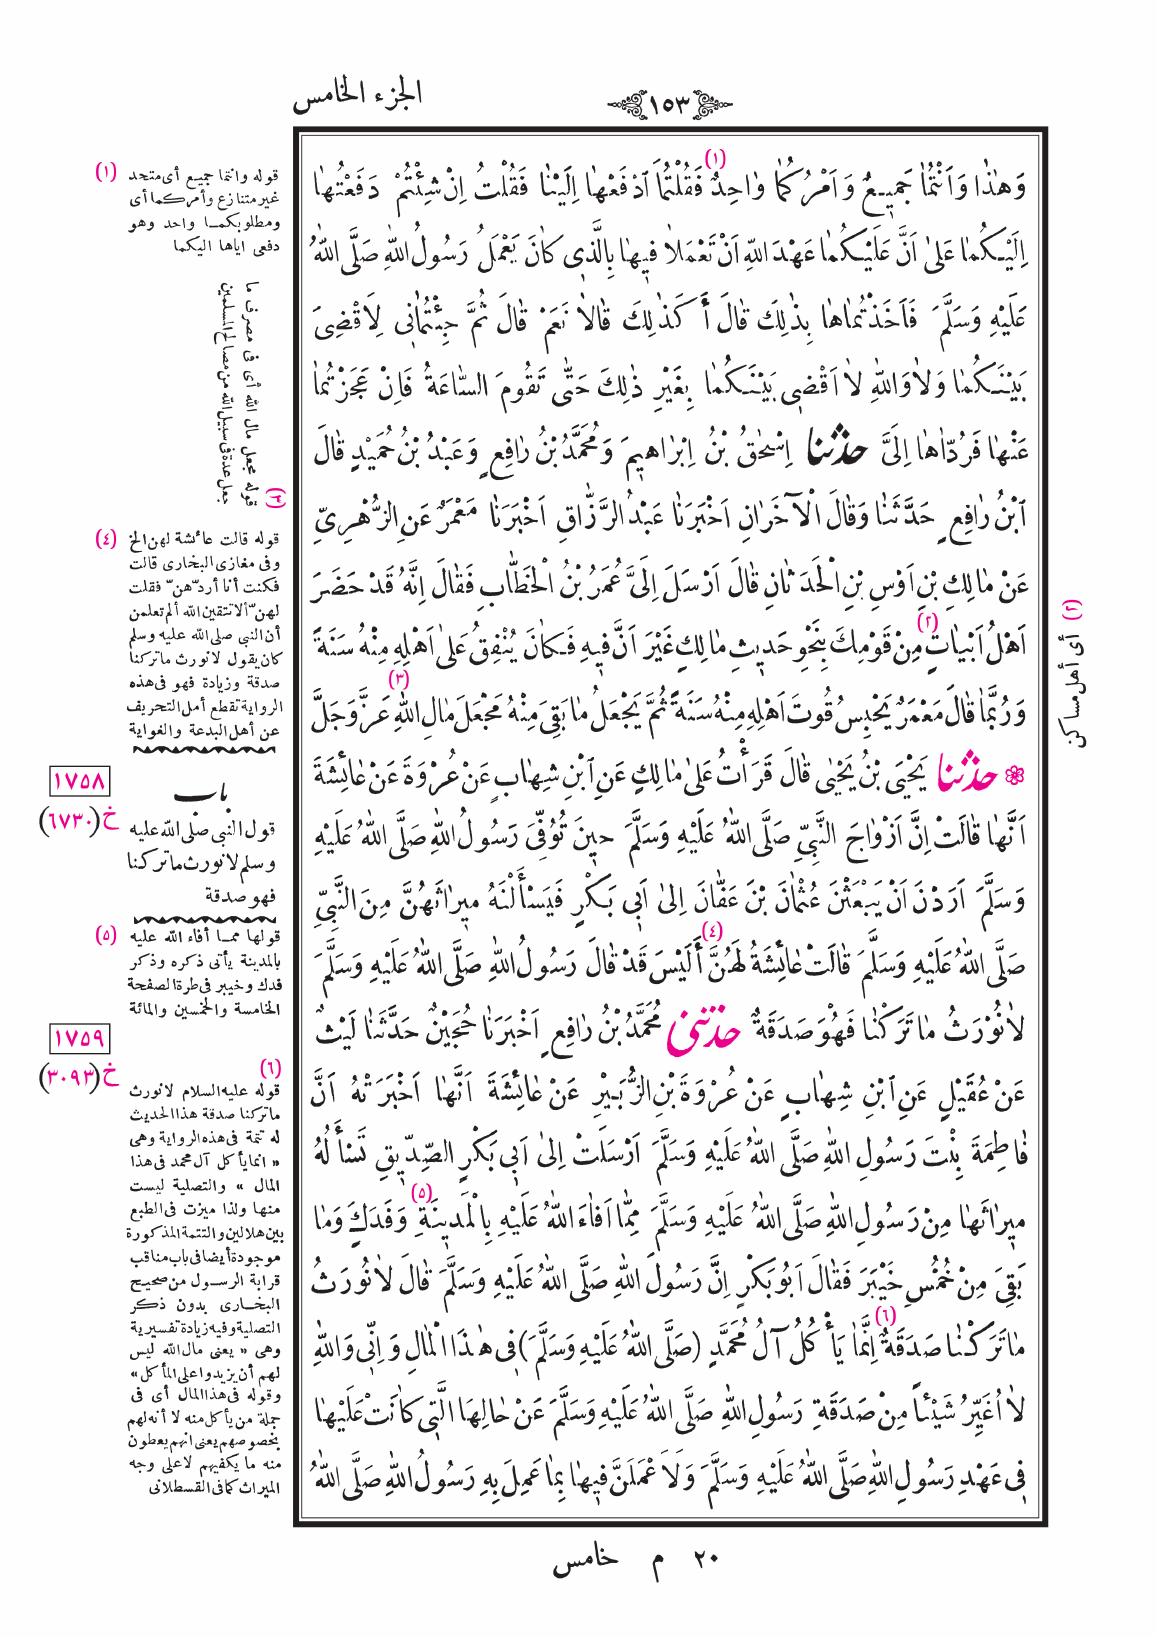 الجزء الخامس
١٥٣
وَهٰذَا وَاَنْتُمَا جَمِيعٌ وَاَمْرُكُمَا وَاحِدٌ (١) فَقُلْتُمَا اَدْفَعْهَا اِلَيْنَا فَقُلْتُ اِنْ شِئْتُمْ دَفَعْتُهَا
اِلَيْكُمَا عَلىٰ اَنَّ عَلَيْكُمَا عَهْدَ اللّٰهِ اَنْ تَعْمَلَا فِيهَا بِالَّذِي كَانَ يَعْمَلُ رَسُولُ اللّٰهِ صَلَّى اللّٰهُ
عَلَيْهِ وَسَلَّمَ فَاَخَذْتُمَاهَا بِذٰلِكَ قَالَ أَكَذٰلِكَ قَالَا نَعَمْ قَالَ ثُمَّ جِئْتُمَانِي لِاَقْضِىَ
بَيْنَكُمَا وَلَا وَاللّٰهِ لَا اَقْضِي بَيْنَكُمَا بِغَيْرِ ذٰلِكَ حَتّٰى تَقُومَ السَّاعَةُ فَاِنْ عَجَزْتُمَا
عَنْهَا فَرُدَّاهَا اِلَىَّ حدثنا اِسْحٰقُ بْنُ اِبْرَاهِيمَ وَمُحَمَّدُ بْنُ رَافِعٍ وَعَبْدُ بْنُ حُمَيْدٍ قَالَ
اَبْنُ رَافِعٍ حَدَّثَنَا وَقَالَ الْآخَرَانِ اَخْبَرَنَا عَبْدُ الرَّزَّاقِ اَخْبَرَنَا مَعْمَرٌ عَنِ الزُّهْرِيِّ
عَنْ مَالِكِ بْنِ اَوْسِ بْنِ الْحَدَثَانِ قَالَ اَرْسَلَ اِلَىَّ عُمَرُ بْنُ الْخَطَّابِ فَقَالَ اِنَّهُ قَدْ حَضَرَ
اَهْلُ اَبْيَاتٍ (٢) مِنْ قَوْمِكَ بِنَحْوِ حَدِيثِ مَالِكٍ غَيْرَ اَنَّ فِيهِ فَكَانَ يُنْفِقُ عَلىٰ اَهْلِهِ مِنْهُ سَنَةً
وَرُبَّمَا قَالَ مَعْمَرٌ يَحْبِسُ قُوتَ اَهْلِهِ مِنْهُ سَنَةً ثُمَّ يَجْعَلُ مَا بَقِىَ مِنْهُ (٣) مَجْعَلَ مَالِ اللّٰهِ عَزَّ وَجَلَّ
حدثنا يَحْيَى بْنُ يَحْيٰى قَالَ قَرَأْتُ عَلىٰ مَالِكٍ عَنِ ابْنِ شِهَابٍ عَنْ عُرْوَةَ عَنْ عَائِشَةَ
اَنَّهَا قَالَتْ اِنَّ اَزْوَاجَ النَّبِيِّ صَلَّى اللّٰهُ عَلَيْهِ وَسَلَّمَ حِينَ تُوُفِّىَ رَسُولُ اللّٰهِ صَلَّى اللّٰهُ عَلَيْهِ
وَسَلَّمَ اَرَدْنَ اَنْ يَبْعَثْنَ عُثْمَانَ بْنَ عَفَّانَ اِلىٰ اَبِي بَكْرٍ فَيَسْأَلْنَهُ مِيرَاثَهُنَّ مِنَ النَّبِيِّ
صَلَّى اللّٰهُ عَلَيْهِ وَسَلَّمَ قَالَتْ عَائِشَةُ لَهُنَّ (٤) أَلَيْسَ قَدْ قَالَ رَسُولُ اللّٰهِ صَلَّى اللّٰهُ عَلَيْهِ وَسَلَّمَ
لَا نُوْرَثُ مَا تَرَكْنَا فَهُوَ صَدَقَةٌ حدثنى مُحَمَّدُ بْنُ رَافِعٍ اَخْبَرَنَا حُجَيْنٌ حَدَّثَنَا لَيْثٌ
عَنْ عُقَيْلٍ عَنِ ابْنِ شِهَابٍ عَنْ عُرْوَةَ بْنِ الزُّبَيْرِ عَنْ عَائِشَةَ اَنَّهَا اَخْبَرَتْهُ اَنَّ
فَاطِمَةَ بِنْتَ رَسُولِ اللّٰهِ صَلَّى اللّٰهُ عَلَيْهِ وَسَلَّمَ اَرْسَلَتْ اِلىٰ اَبِي بَكْرٍ الصِّدِّيقِ تَسْأَلُهُ
مِيرَاثَهَا مِنْ رَسُولِ اللّٰهِ صَلَّى اللّٰهُ عَلَيْهِ وَسَلَّمَ مِمَّا اَفَاءَ اللّٰهُ عَلَيْهِ بِالْمَدِينَةِ (٥) وَفَدَكٍ وَمَا
بَقِىَ مِنْ خُمُسِ خَيْبَرَ فَقَالَ اَبُو بَكْرٍ اِنَّ رَسُولَ اللّٰهِ صَلَّى اللّٰهُ عَلَيْهِ وَسَلَّمَ قَالَ لَا نُورَثُ
مَا تَرَكْنَا صَدَقَةٌ (٦) اِنَّمَا يَأْكُلُ آلُ مُحَمَّدٍ (صَلَّى اللّٰهُ عَلَيْهِ وَسَلَّمَ) فِي هٰذَا الْمَالِ وَاِنِّي وَاللّٰهِ
لَا اُغَيِّرُ شَيْئاً مِنْ صَدَقَةِ رَسُولِ اللّٰهِ صَلَّى اللّٰهُ عَلَيْهِ وَسَلَّمَ عَنْ حَالِهَا الَّتِي كَانَتْ عَلَيْهَا
فِي عَهْدِ رَسُولِ اللّٰهِ صَلَّى اللّٰهُ عَلَيْهِ وَسَلَّمَ وَلَاَعْمَلَنَّ فِيهَا بِمَا عَمِلَ بِهِ رَسُولُ اللّٰهِ صَلَّى اللّٰهُ
(١) قوله وانتما جميع أى متحد
غير متنازع وأمركما أى
ومطلوبكما واحد وهو
دفعى اياها اليكما
(٢) أى أهل مساكن
(٣) قوله مجعل مال الله أى فى مصرف ما
جعل عدة فى سبيل الله من مصالح المسلمين
(٤) قوله قالت عائشة لهن الخ
وفى مغازى البخارى قالت
فكنت أنا أردّهنّ فقلت
لهنّ ألا تتقين الله ألم تعلمن
أن النبى صلى الله عليه وسلم
كان يقول لا نورث ما تركنا
صدقة وزيادة فهو فى هذه
الرواية تقطع أمل التحريف
عن أهل البدعة والغواية
١٧٥٨
خ(٦٧٣٠)
باب
قول النبى صلى الله عليه
وسلم لا نورث ما تركنا
فهو صدقة
(٥) قولها مما أفاء الله عليه
بالمدينة يأتى ذكره وذكر
فدك وخيبر فى طرة الصفحة
الخامسة والخمسين والمائة
١٧٥٩
خ(٣٠٩٣)
(٦)
قوله عليه السلام لا نورث
ما تركنا صدقة هذا الحديث
له تتمة فى هذه الرواية وهى
« انما يأكل آل محمد فى هذا
المال » والتصلية ليست
منها ولذا ميزت فى الطبع
بين هلالين والتتمة المذكورة
موجودة أيضا فى باب مناقب
قرابة الرسول من صحيح
البخارى بدون ذكر
التصلية وفيه زيادة تفسيرية
وهى « يعنى مال الله ليس
لهم أن يزيدوا على المأكل»
وقوله فى هذا المال أى فى
جملة من يأكل منه لا أنه لهم
بخصوصهم يعنى انهم يعطون
منه ما يكفيهم لا على وجه
الميراث كما فى القسطلانى
٢٠ م خامس